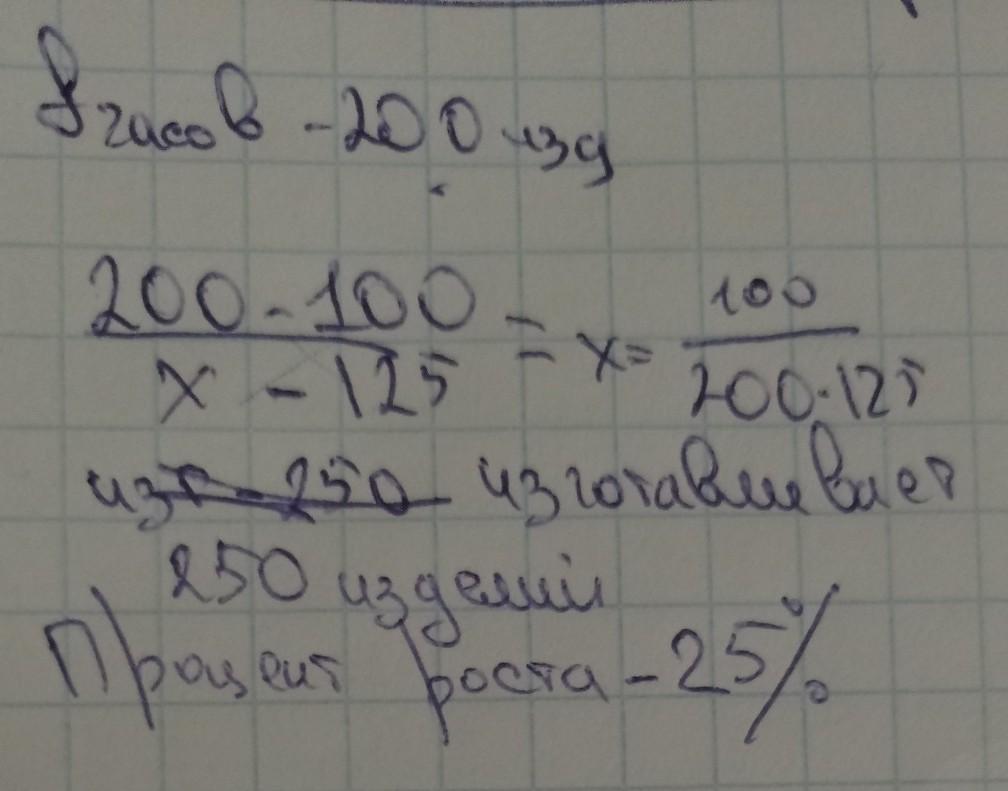 8 часов - 200 изд
200 - 100
x - 125
= x = 100
200 · 125
изг - 250 изготавливает
250 изделий
Процент роста - 25%